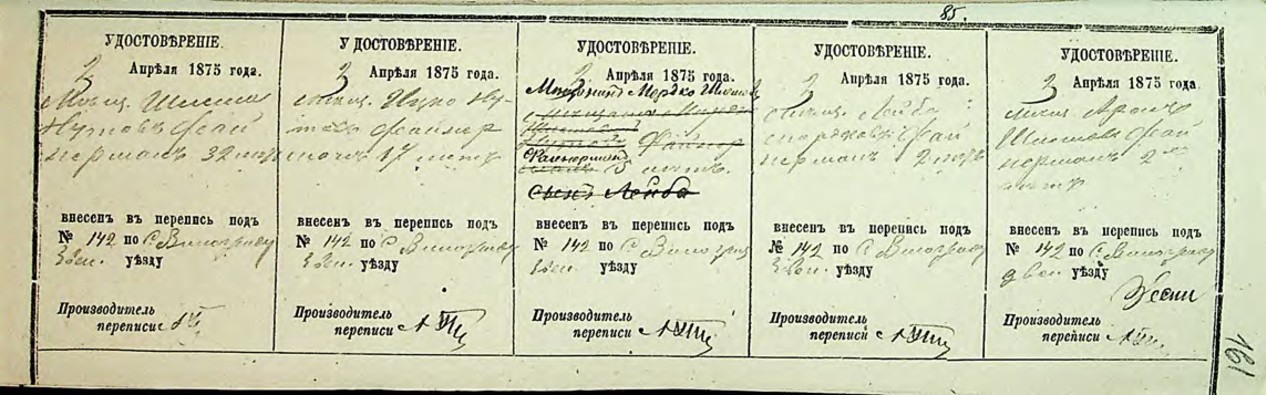 85.
УДОСТОВѢРЕНІЕ.
3 Апрѣля 1875 года.
Мѣщ. Шлема
Нутовъ Фай
нерманъ 32 лѣтъ
внесенъ въ перепись подъ
№ 142 по С. Виноград
Звен. уѣзду
Производитель
переписи
УДОСТОВѢРЕНІЕ.
3 Апрѣля 1875 года.
мѣщ. Ицко Ну-
товъ Файнер
манъ 17 лѣтъ
внесенъ въ перепись подъ
№ 142 по С. Виноград
Звен. уѣзду
Производитель
переписи
УДОСТОВѢРЕНІЕ.
3 Апрѣля 1875 года.
Мѣщанинъ Мордко Шлемов
Файнер
5 лѣтъ.
сынъ Лейба
внесенъ въ перепись подъ
№ 142 по С. Виноград
Звен. уѣзду
Производитель
переписи
УДОСТОВѢРЕНІЕ.
3 Апрѣля 1875 года.
Мѣщ. Лейба
Фай
нерманъ 2 лѣтъ
внесенъ въ перепись подъ
№ 142 по С. Виноград
Звен. уѣзду
Производитель
переписи
УДОСТОВѢРЕНІЕ.
3 Апрѣля 1875 года.
мѣщ. Аронъ
Шлемовъ Фай
нерманъ 2
лѣтъ
внесенъ въ перепись подъ
№ 142 по С. Виноград
Звен. уѣзду
Производитель
переписи
161